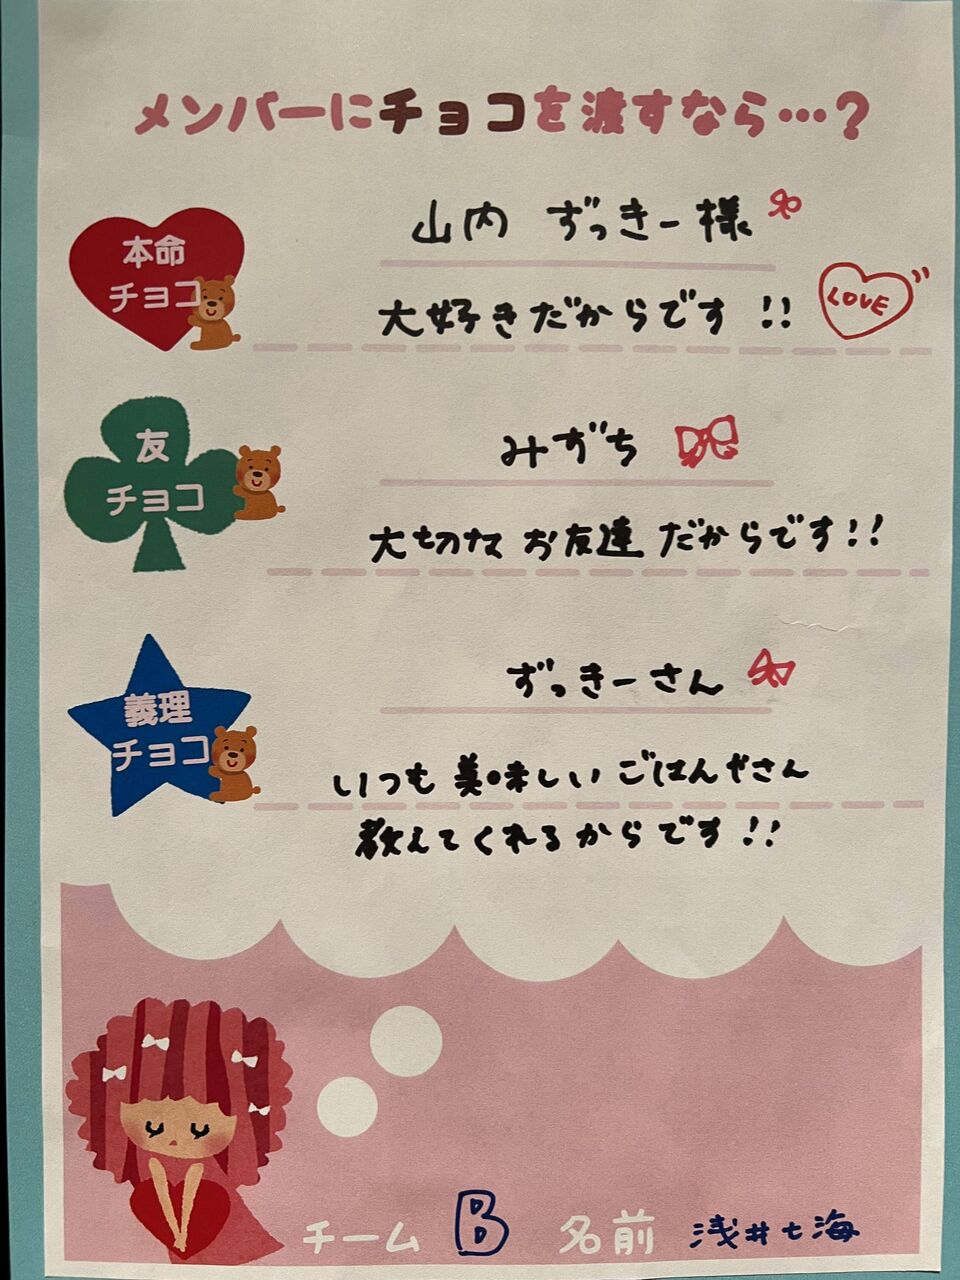 メンバーにチョコを渡すなら…？
本命
チョコ
山内 ずっきー様
大好きだからです !!
LOVE
友
チョコ
みずち
大切な お友達 だからです!!
義理
チョコ
ずっきーさん
いつも 美味しい ごはんやさん
教えてくれるからです !!
チーム B 名前 浅井七海